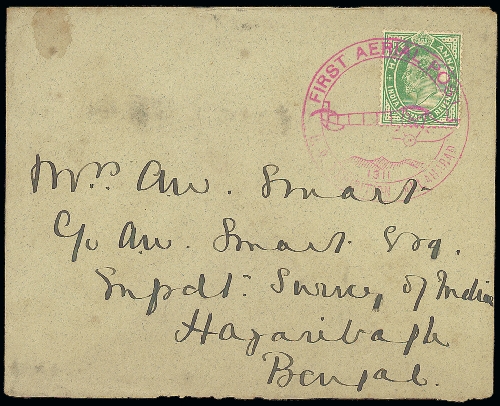 FIRST AERIAL PO
HALF ANNA
INDIA POSTAGE & REVENUE
1911
Mrs. Aw. Smart
C/o Aw. Smart Esq.
Supdt. Survey of India
Hazaribagh
Bengal.